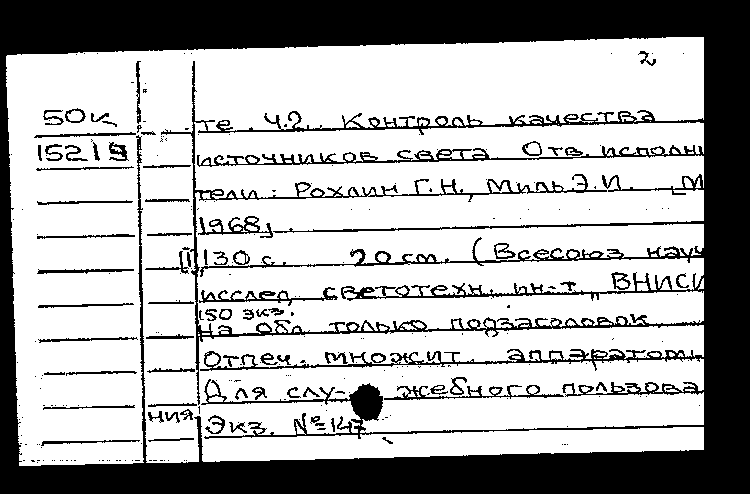 2
50к те. Ч.2. Контроль качества
15219 источников света. Отв. исполни
тели: Рохлин Г.Н., Миль Э.И. "М
1968,
130 с. 20 см. (Всесоюз науч
исслед. светотехн. ин-т, ВНИСИ
150 экз.
На обл. только подзаголовок.
Отпеч. множит. аппаратом.
Для слу- жебного пользова
ния Экз. №147